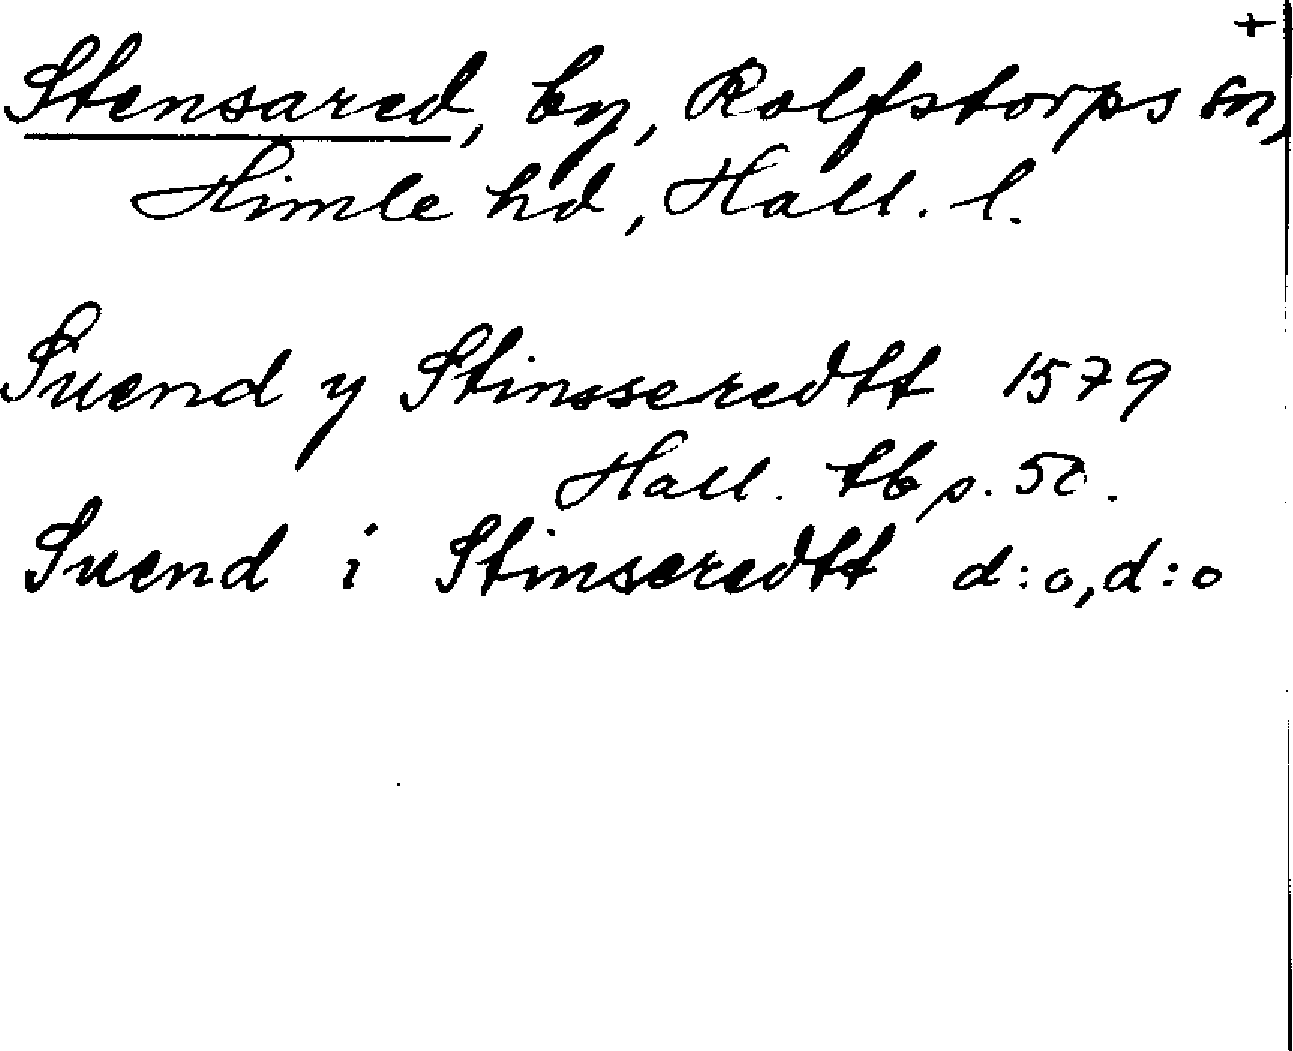 +
Stensared, by, Rolfstorps sn,
Himle hd, Hall. l.
Suend y Stinsseredtt 1579
Hall. tb p. 50.
Suend i Stinseredtt d:o, d:o